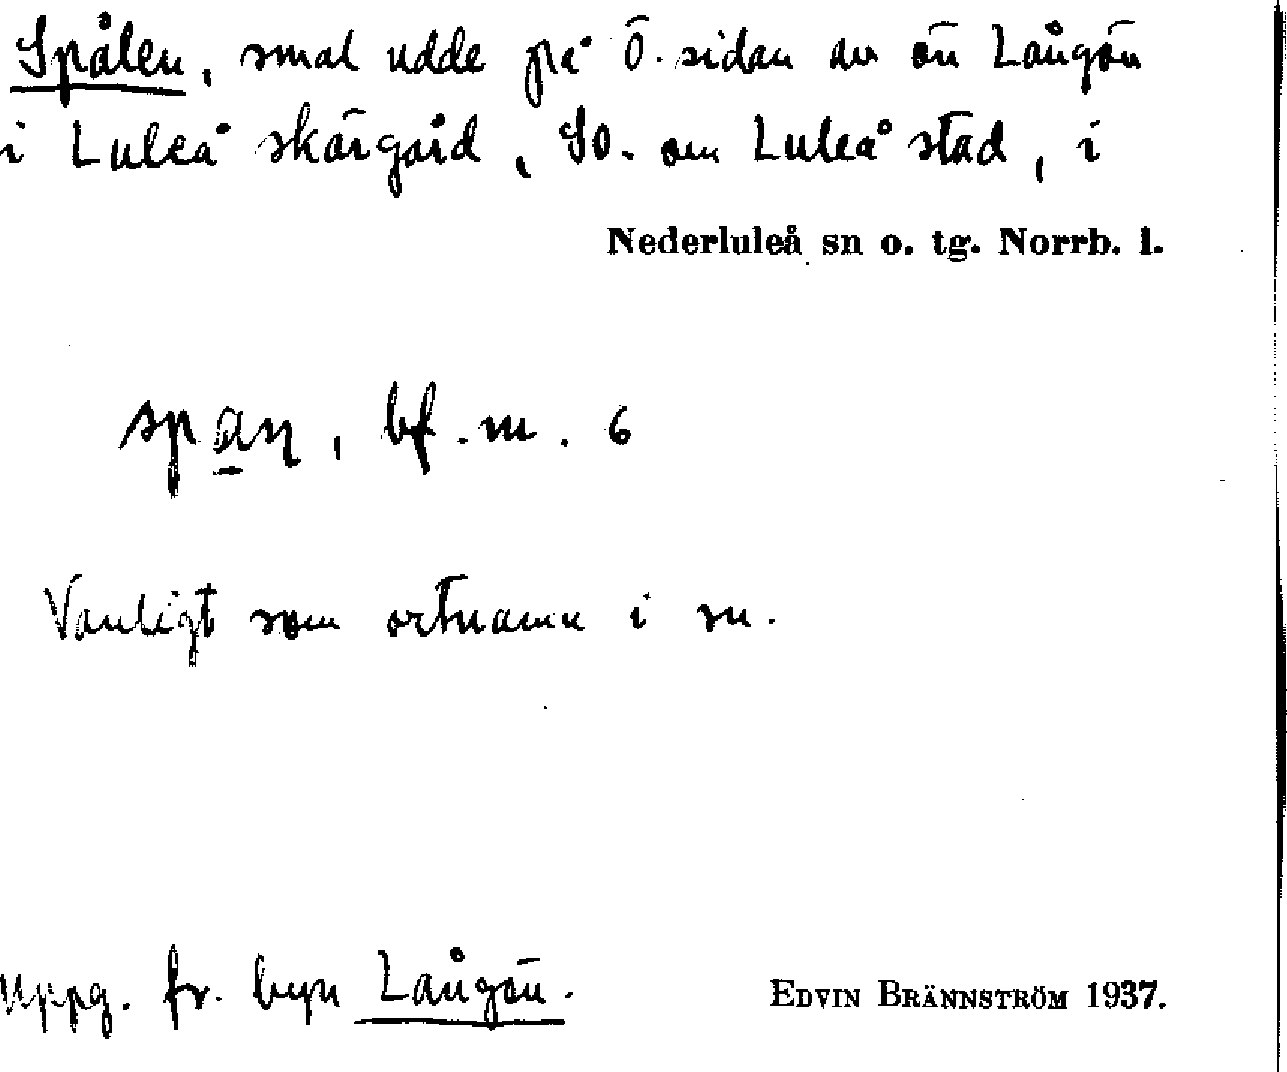 Spålen, smal udde på Ö. sidan av ön Långön
i Luleå skärgård, SO. om Luleå stad, i
Nederluleå sn o. tg. Norrb. l.
span, bf. m. 6
Vanligt som ortnamn i sn.
Uppg. fr. byn Långön.
EDVIN BRÄNNSTRÖM 1937.